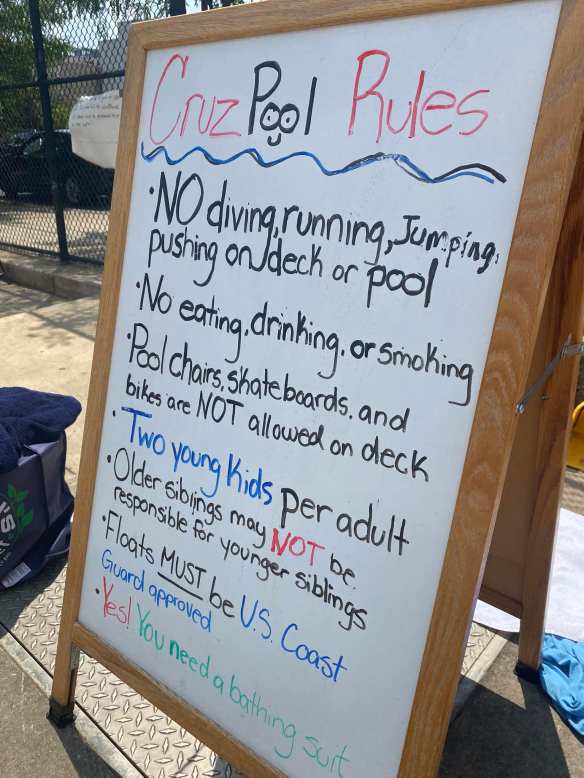 Cruz Pool Rules
·NO diving, running, Jumping,
pushing on deck or pool
·No eating, drinking, or smoking
·Pool chairs, skateboards, and
bikes are NOT allowed on deck
·Two young kids per adult
·Older siblings may NOT be
responsible for younger siblings
·Floats MUST be U.S. Coast
Guard approved
·Yes! You need a bathing suit